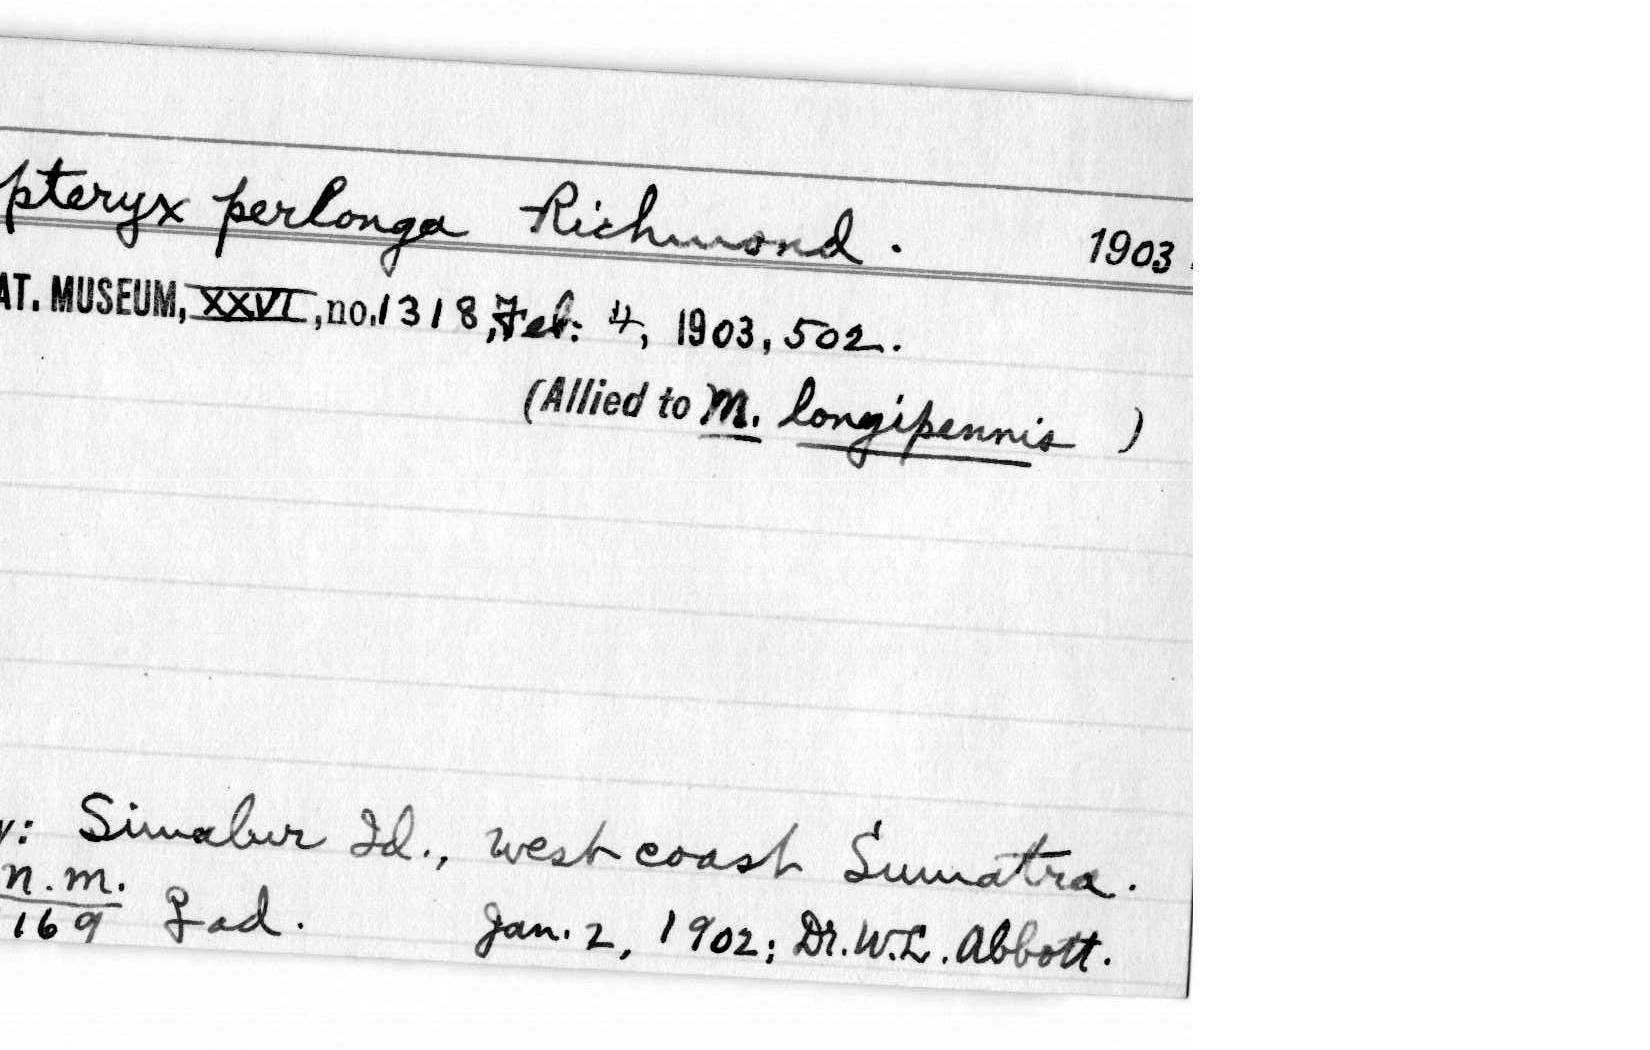 pteryx perlonga Richmond. 1903.
AT. MUSEUM, XXVI, no. 1318, Feb. 4, 1903, 502.
(Allied to M. longipennis )
y: Simalur Id., west coast Sumatra.
n.m.
169 ♀ ad. Jan. 2, 1902; Dr. W. L. Abbott.